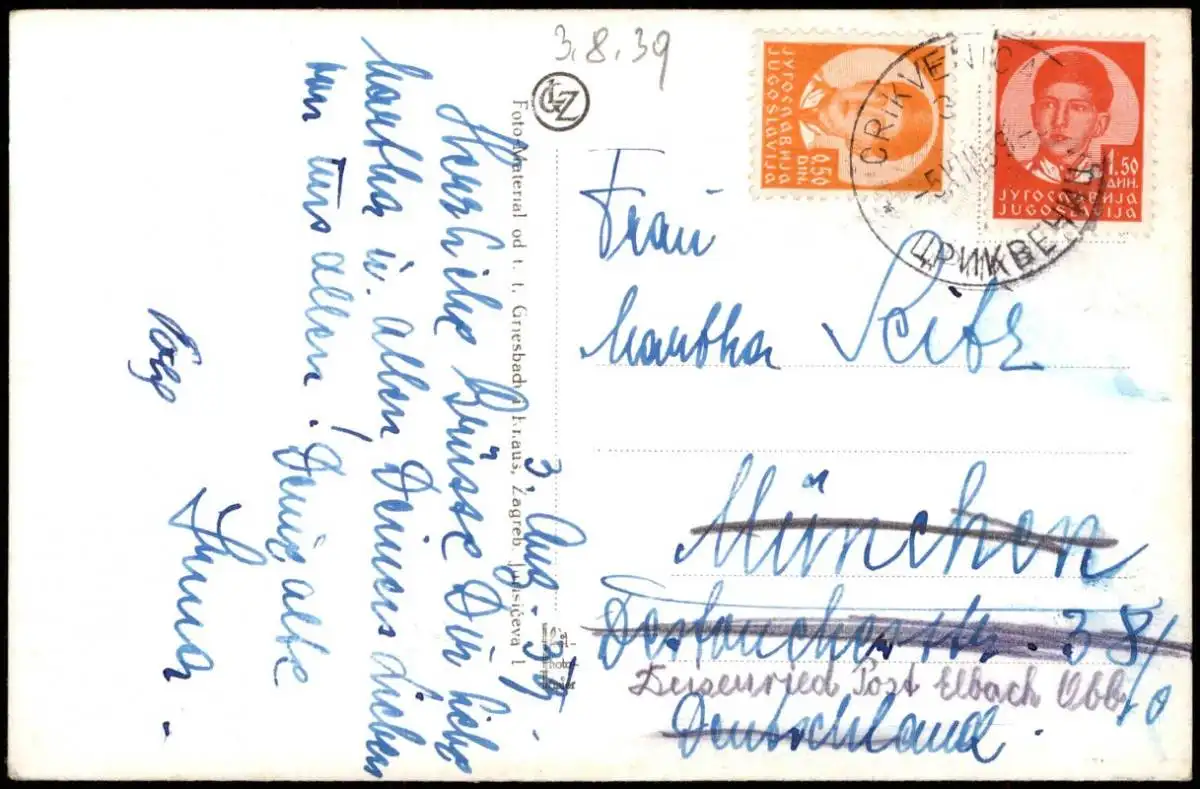 3.8.39
3. Aug. 39.
Herzliche Grüsse Dir liebe
Martha u. allen Deinen Lieben
von uns allen! Deine alte
Anna.
Foto-Material od t. t. Griesbach i Kraus, Zagreb, Jurišićeva 1
ЈУГОСЛАВИЈА
JUGOSLAVIJA
0.50
DIN.
1.50
ДИН.
ЈУГОСЛАВИЈА
JUGOSLAVIJA
CRIKVENICA
-5.VIII.39-
ЦРИКВЕНИЦА
Frau
Martha Seitz
München
Destoucherstr. 38/0
Post Elbach Obb.
Deutschland.